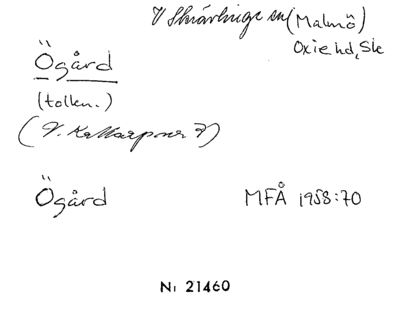 V Skrävlinge sn (Malmö)
Oxie hd, Sk
Ögård
(tolkn.)
(V. Kattarp nr 7)
Ögård MFÅ 1958:70
Nr 21460